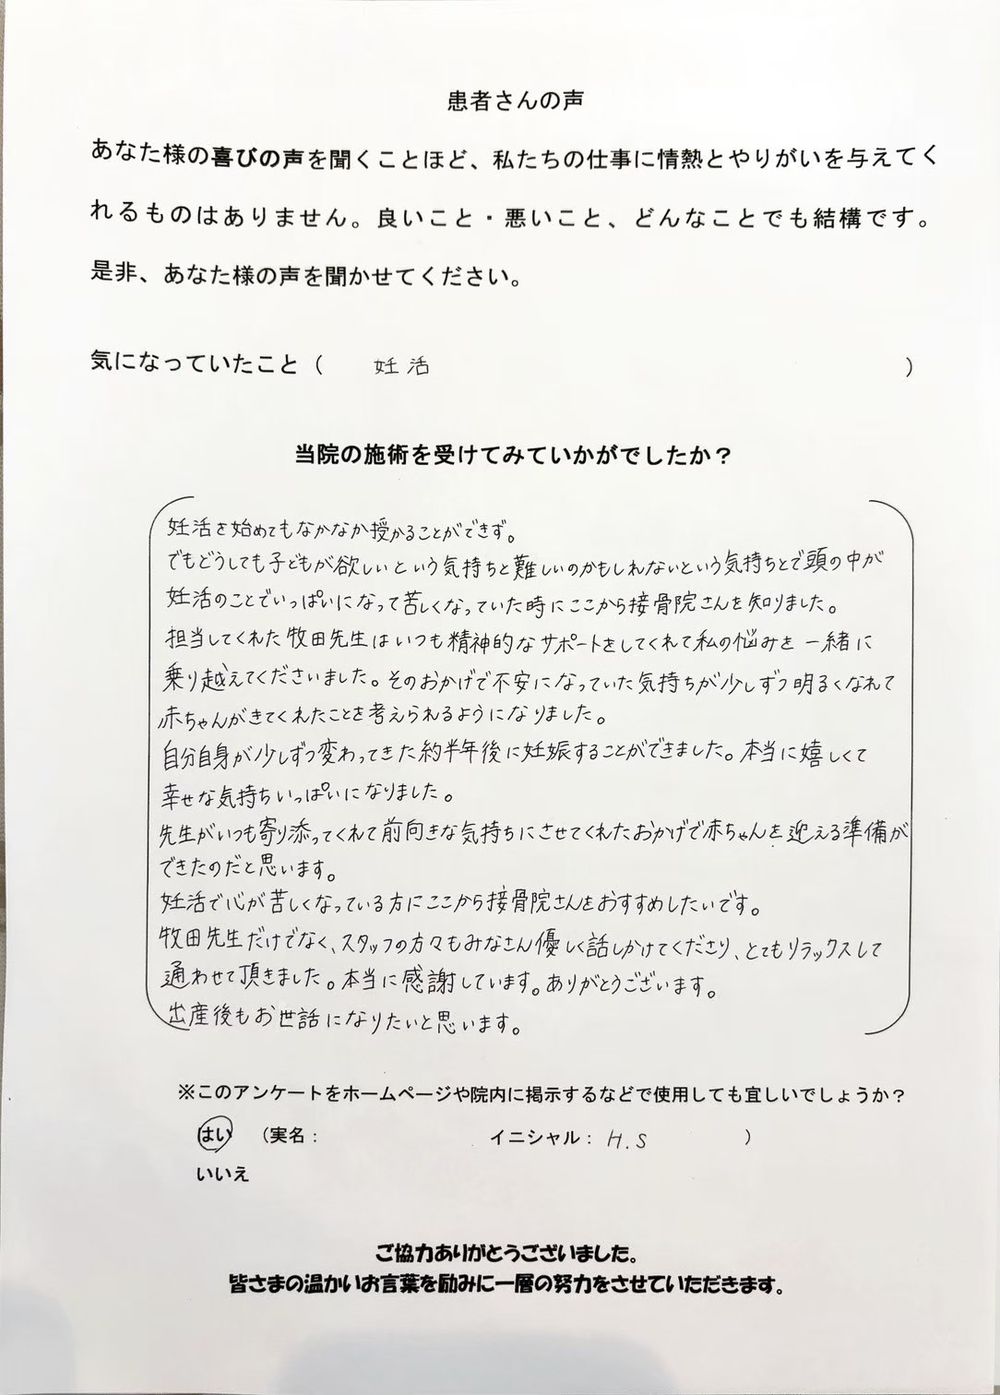 患者さんの声
あなた様の喜びの声を聞くことほど、私たちの仕事に情熱とやりがいを与えてく
れるものはありません。良いこと・悪いこと、どんなことでも結構です。
是非、あなた様の声を聞かせてください。
気になっていたこと（　妊活　）
当院の施術を受けてみていかがでしたか？
妊活を始めてもなかなか授かることができず。
でもどうしても子どもが欲しいという気持ちと難しいのかもしれないという気持ちとで頭の中が
妊活のことでいっぱいになって苦しくなっていた時にここから接骨院さんを知りました。
担当してくれた牧田先生はいつも精神的なサポートをしてくれて私の悩みを一緒に
乗り越えてくださいました。そのおかげで不安になっていた気持ちが少しずつ明るくなれて
赤ちゃんがきてくれたことを考えられるようになりました。
自分自身が少しずつ変わってきた約半年後に妊娠することができました。本当に嬉しくて
幸せな気持ちいっぱいになりました。
先生がいつも寄り添ってくれて前向きな気持ちにさせてくれたおかげで赤ちゃんを迎える準備が
できたのだと思います。
妊活で心が苦しくなっている方にここから接骨院さんをおすすめしたいです。
牧田先生だけでなく、スタッフの方々もみなさん優しく話しかけてくださり、とてもリラックスして
通わせて頂きました。本当に感謝しています。ありがとうございます。
出産後もお世話になりたいと思います。
※このアンケートをホームページや院内に掲示するなどで使用しても宜しいでしょうか？
はい　（実名：　イニシャル：H.S　）
いいえ
ご協力ありがとうございました。
皆さまの温かいお言葉を励みに一層の努力をさせていただきます。